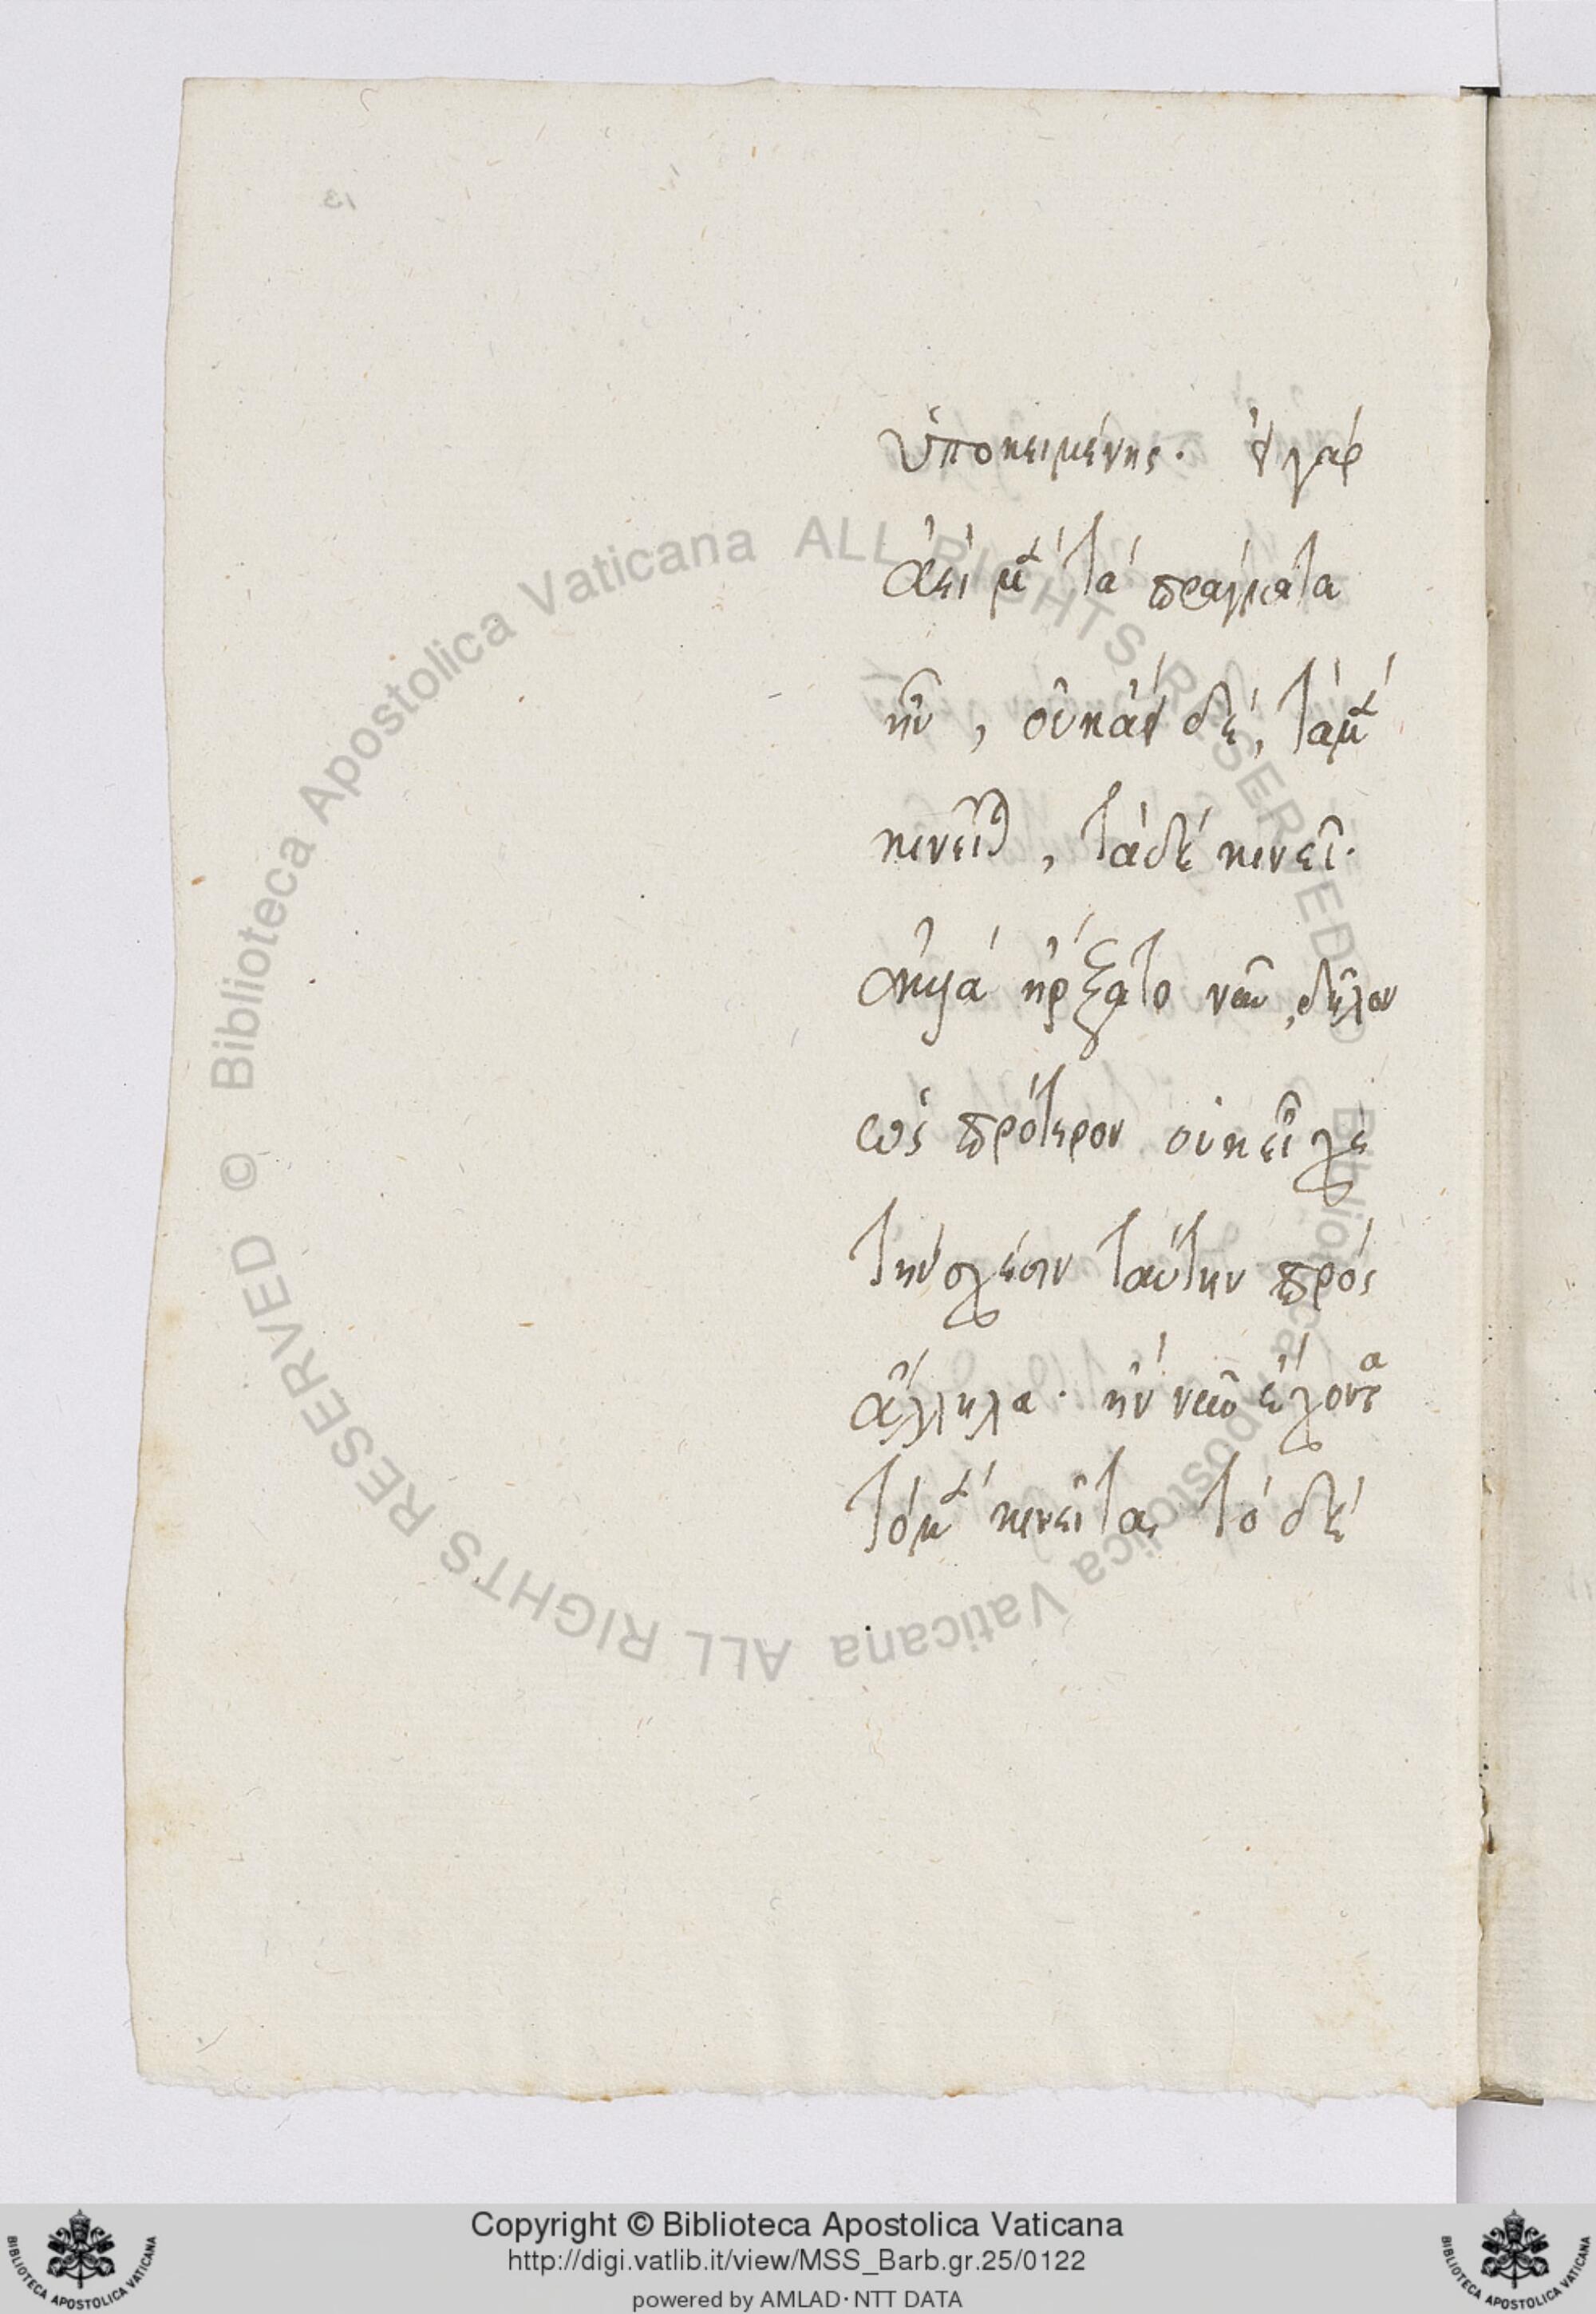 ὑποκειμένης. εἰ γάρ
ἀεὶ μὲν τὰ πράγματα
ἦν, οὐκ ἀεὶ δέ, τὰ μὲν
κινεῖται, τὰ δὲ κινεῖ.
ἤρξατο νῦν, δῆλον
ὡς πρότερον οὐκ εἶχε
τὴν σχέσιν ταύτην πρὸς
ἄλληλα. ἣν νῦν ἔχοντα
τὸ μὲν κινεῖται τὸ δὲ
Biblioteca Apostolica Vaticana ALL RIGHTS RESERVED © Biblioteca Apostolica Vaticana ALL RIGHTS RESERVED ©
Copyright © Biblioteca Apostolica Vaticana
http://digi.vatlib.it/view/MSS_Barb.gr.25/0122
powered by AMLAD·NTT DATA
BIBLIOTECA APOSTOLICA VATICANA
BIBLIOTECA APOSTOLICA VATICANA